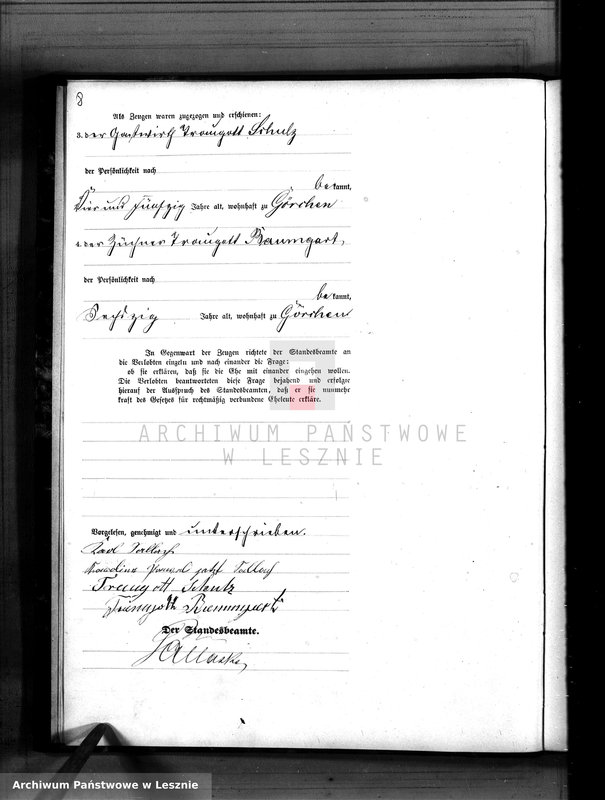 8
Als Zeugen waren zugezogen und erschienen:
3. der Gastwirth Traugott Schulz
der Persönlichkeit nach
bekannt,
Vier und fünfzig Jahre alt, wohnhaft zu Görchen
4. der Züchner Traugott Baumgart,
der Persönlichkeit nach
bekannt,
Sechszig Jahre alt, wohnhaft zu Görchen
In Gegenwart der Zeugen richtete der Standesbeamte an
die Verlobten einzeln und nach einander die Frage:
ob sie erklären, daß sie die Ehe mit einander eingehen wollen.
Die Verlobten beantworteten diese Frage bejahend und erfolgte
hierauf der Ausspruch des Standesbeamten, daß er sie nunmehr
kraft des Gesetzes für rechtmäßig verbundene Eheleute erkläre.
ARCHIWUM PAŃSTWOWE
W LESZNIE
Vorgelesen, genehmigt und unterschrieben.
Traugott Schulz
Traugott Baumgart
Der Standesbeamte.
Archiwum Państwowe w Lesznie